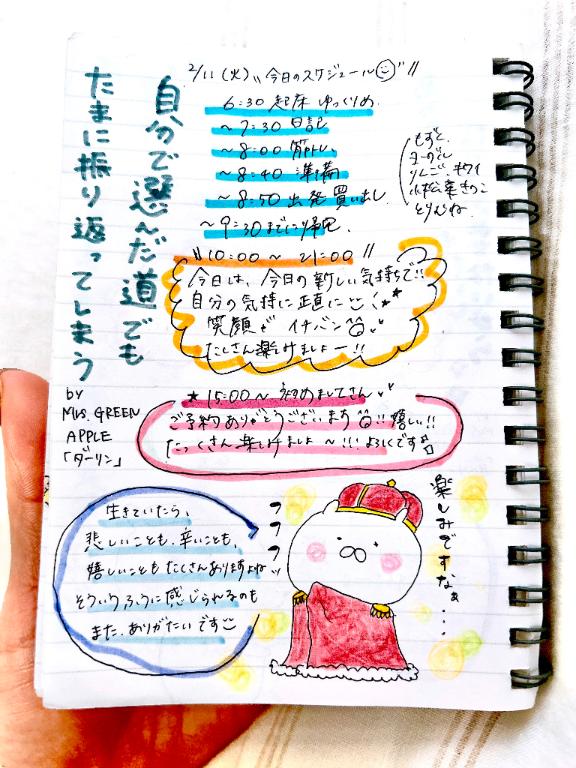 2/11(火)"今日のスケジュール"
6:30 起床 ゆっくりめ
~7:30 日記
~8:00 筋トレ
~8:40 準備
~8:50 出発 買い出し
~9:30までに帰宅
もずく、
ヨーグルト
りんご、キウイ
小松菜 きのこ
とりむね
"10:00~21:00"
今日は、今日の新しい気持ちで!!
自分の気持に正直に
笑顔がイチバン
たくさん楽しみましょー!!
★15:00~ 初めましてさん
ご予約ありがとうございます!!嬉しい!!
たっくさん楽しみましょ~!!! よろしくです
自分で選んだ道でも
たまに振り返ってしまう
by
MRS. GREEN
APPLE
「ダーリン」
生きていたら、
悲しいことも、辛いことも、
嬉しいこともたくさんありますよね
そういうふうに感じられるのも
また、ありがたいです
フフフッ
楽しみですなぁ....